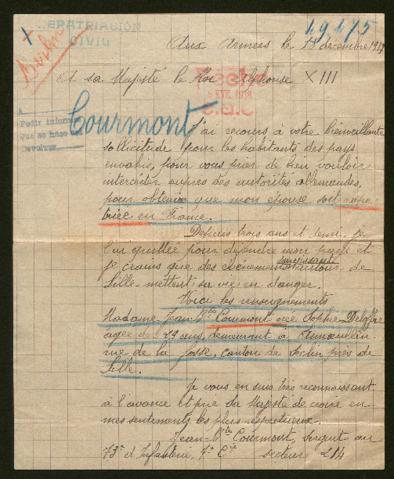 REPATRIACIÓN
CIVIL
49475
Berlin
Aux Armées le 13 décembre 1917
A sa Majesté le Roi Alphonse XIII
Courmont
J'ai recours à votre bienveillante
sollicitude pour les habitants des pays
envahis, pour vous prier de bien vouloir
intercéder auprès des autorités allemandes,
pour obtenir que mon épouse soit rapa-
triée en France.
Depuis trois ans et demi, je
l'ai quittée pour défendre mon pays et
je crains que des événements autour de
Lille mettent sa vie en danger.
Voici les renseignements
Madame Jean-Bte Courmont née Sophie
âgée de 29 ans, demeurant à Annoeullin
rue de la canton de Seclin près de
Lille.
Je vous en suis très reconnaissant
à l'avance et prie Sa Majesté de croire en
mes sentiments les plus respectueux.
Jean-Bte Courmont, Sergent au
73e d'Infanterie, 7e Cie secteur 214